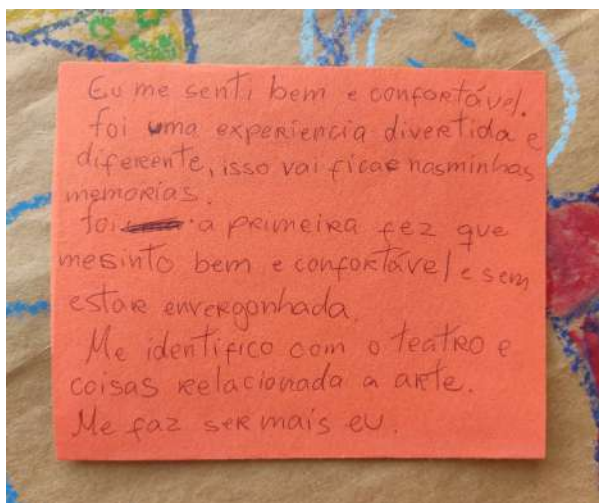 Eu me senti bem e confortável.
foi uma experiencia divertida e
diferente, isso vai ficar nas minhas
memorias.
foi a primeira fez que
me sinto bem e confortável e sem
estar envergonhada.
Me identifico com o teatro e
coisas relacionada a arte.
Me faz ser mais eu.